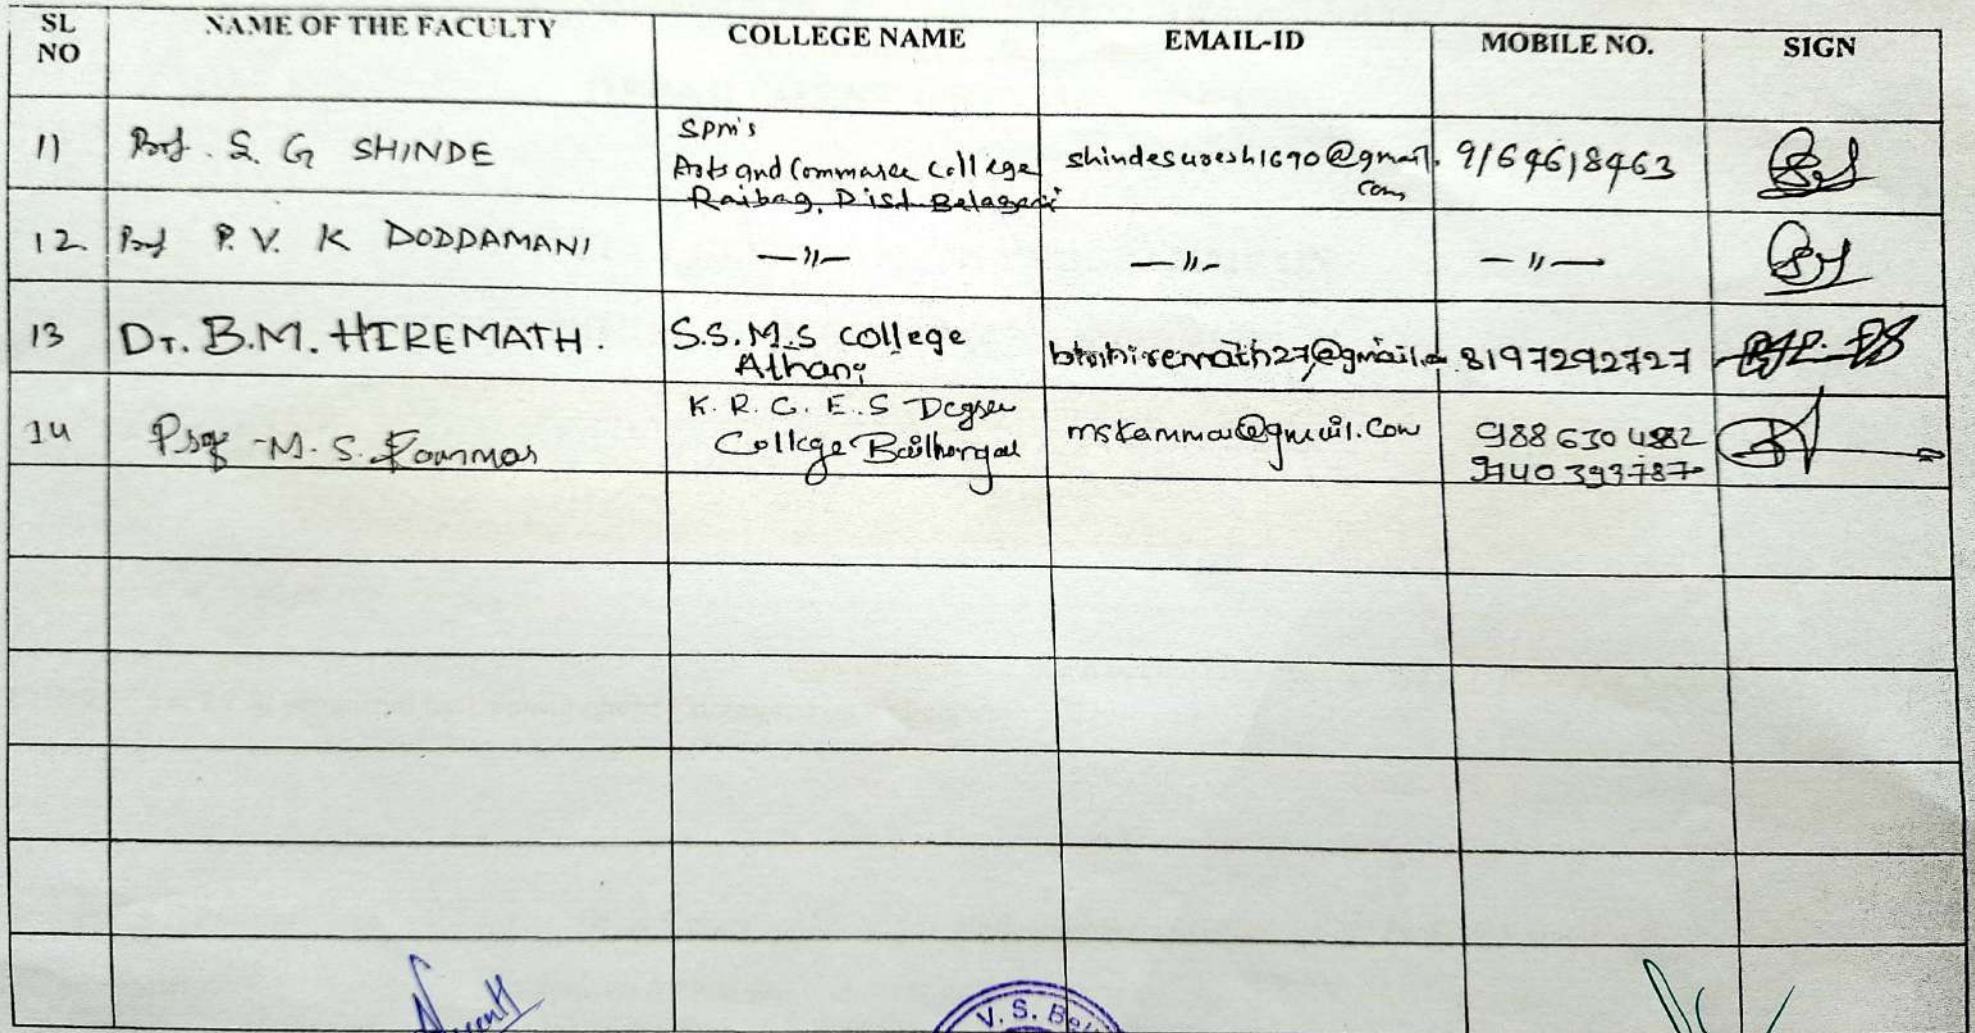 SL NO NAME OF THE FACULTY COLLEGE NAME EMAIL-ID MOBILE NO. SIGN
11 Prof. S. G SHINDE SPM's Arts and Commerce College Raibag, Dist Belagavi shindesuresh1670@gmail.com 9164618463
12. Prof P. V. K DODDAMANI —"— —"— —"—
13 Dr. B.M. HIREMATH. S.S.M.S college Athani bmhiremath27@gmail.c 8197292727
14 Prof M. S. Kammar K. R. C. E. S Degree College Bailhongal mskammar@gmail.com 9886304982 9740393787
V. S. Bel